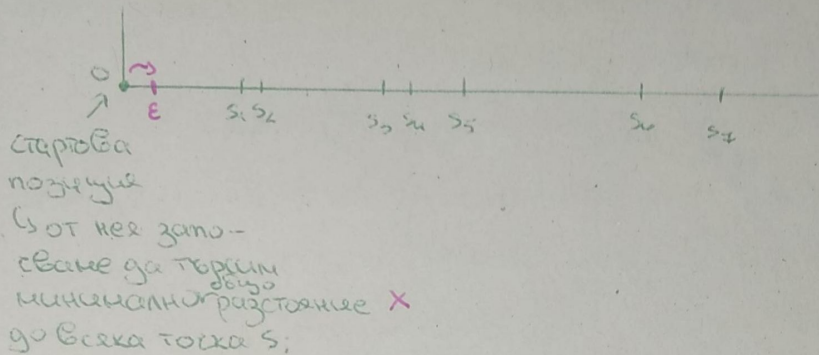 0
ε
S₁ S₂ S₃ S₄ S₅ S₆ S₇
стартова
позиция
↳ от нея запо-
сваме да търсим
общо
минимално разстояние X
до всяка точка Sᵢ